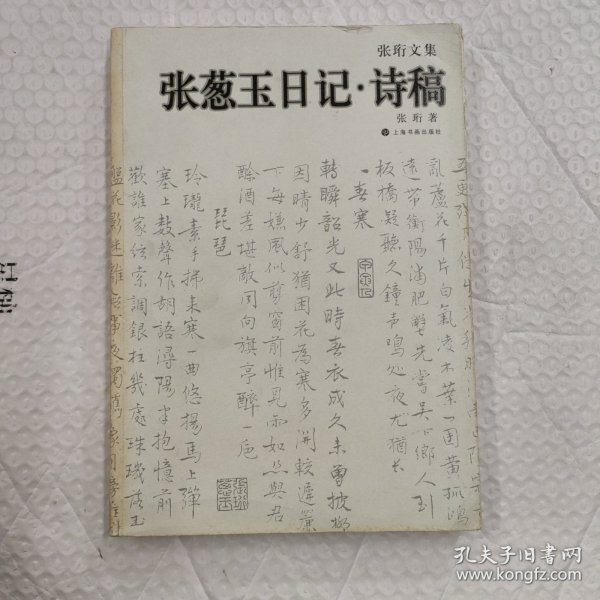 张珩文集
张葱玉日记·诗稿
张珩著
上海书画出版社
亂蘆花千片白氣凌木葉一困黃孤鴻
遠帶衡陽浦肥蟹先嘗吳鄉人到
板橋凝聽久鐘声鳴処夜尤猶长
春寒
轉瞬韶光又此時春衣成久未曾披柳
因晴少舒猶困花為寒多開較遲簾
下每嫌風似剪窗前惟見雨如丝與君
酴酒差堪敵同向旗亭醉一卮
琵琶
玲瓏素手拂来寒一曲悠揚馬上彈
塞上數聲作胡語潯陽半抱憶前
歡誰家絃索調銀柱幾處珠璣落玉
盤花影迷離
孔夫子旧书网
www.kongfz.com